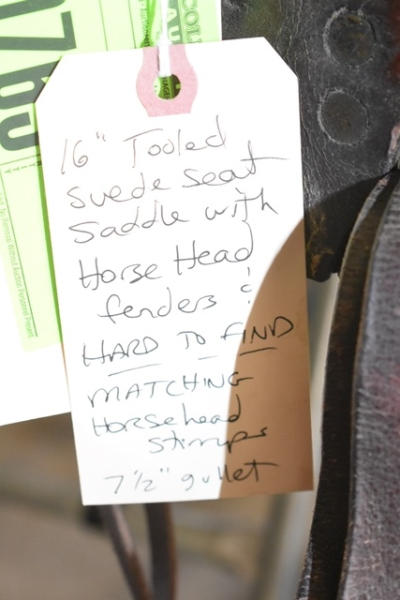 16" Tooled
suede seat
saddle with
Horse Head
fenders &
HARD TO FIND
MATCHING
Horsehead
stirrups
7 1/2" gullet